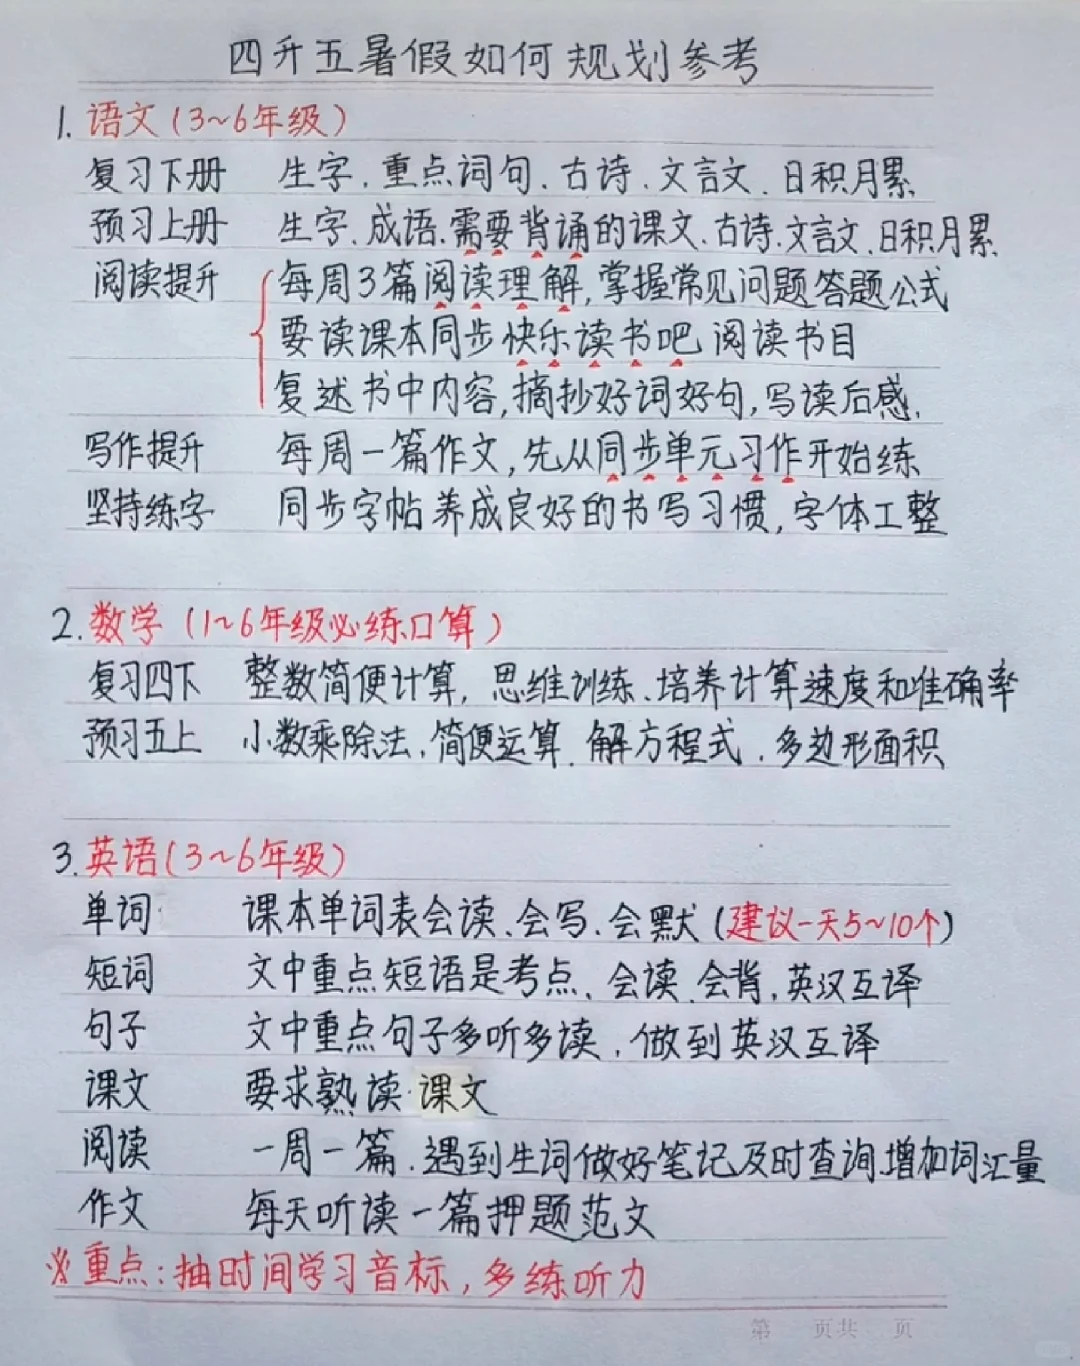 四升五暑假如何规划参考
1. 语文(3~6年级)
复习下册 生字、重点词句、古诗、文言文、日积月累
预习上册 生字、成语、需要背诵的课文、古诗、文言文、日积月累
阅读提升 每周3篇阅读理解,掌握常见问题答题公式
要读课本同步快乐读书吧 阅读书目
复述书中内容,摘抄好词好句,写读后感.
写作提升 每周一篇作文,先从同步单元习作开始练
坚持练字 同步字帖养成良好的书写习惯,字体工整
2. 数学(1~6年级必练口算)
复习四下 整数简便计算, 思维训练、培养计算速度和准确率
预习五上 小数乘除法、简便运算、解方程式、多边形面积
3. 英语(3~6年级)
单词 课本单词表会读、会写、会默(建议一天5~10个)
短词 文中重点短语是考点、会读、会背,英汉互译
句子 文中重点句子多听多读,做到英汉互译
课文 要求熟读课文
阅读 一周一篇、遇到生词做好笔记及时查询、增加词汇量
作文 每天听读一篇押题范文
※重点:抽时间学习音标,多练听力
第 页共 页